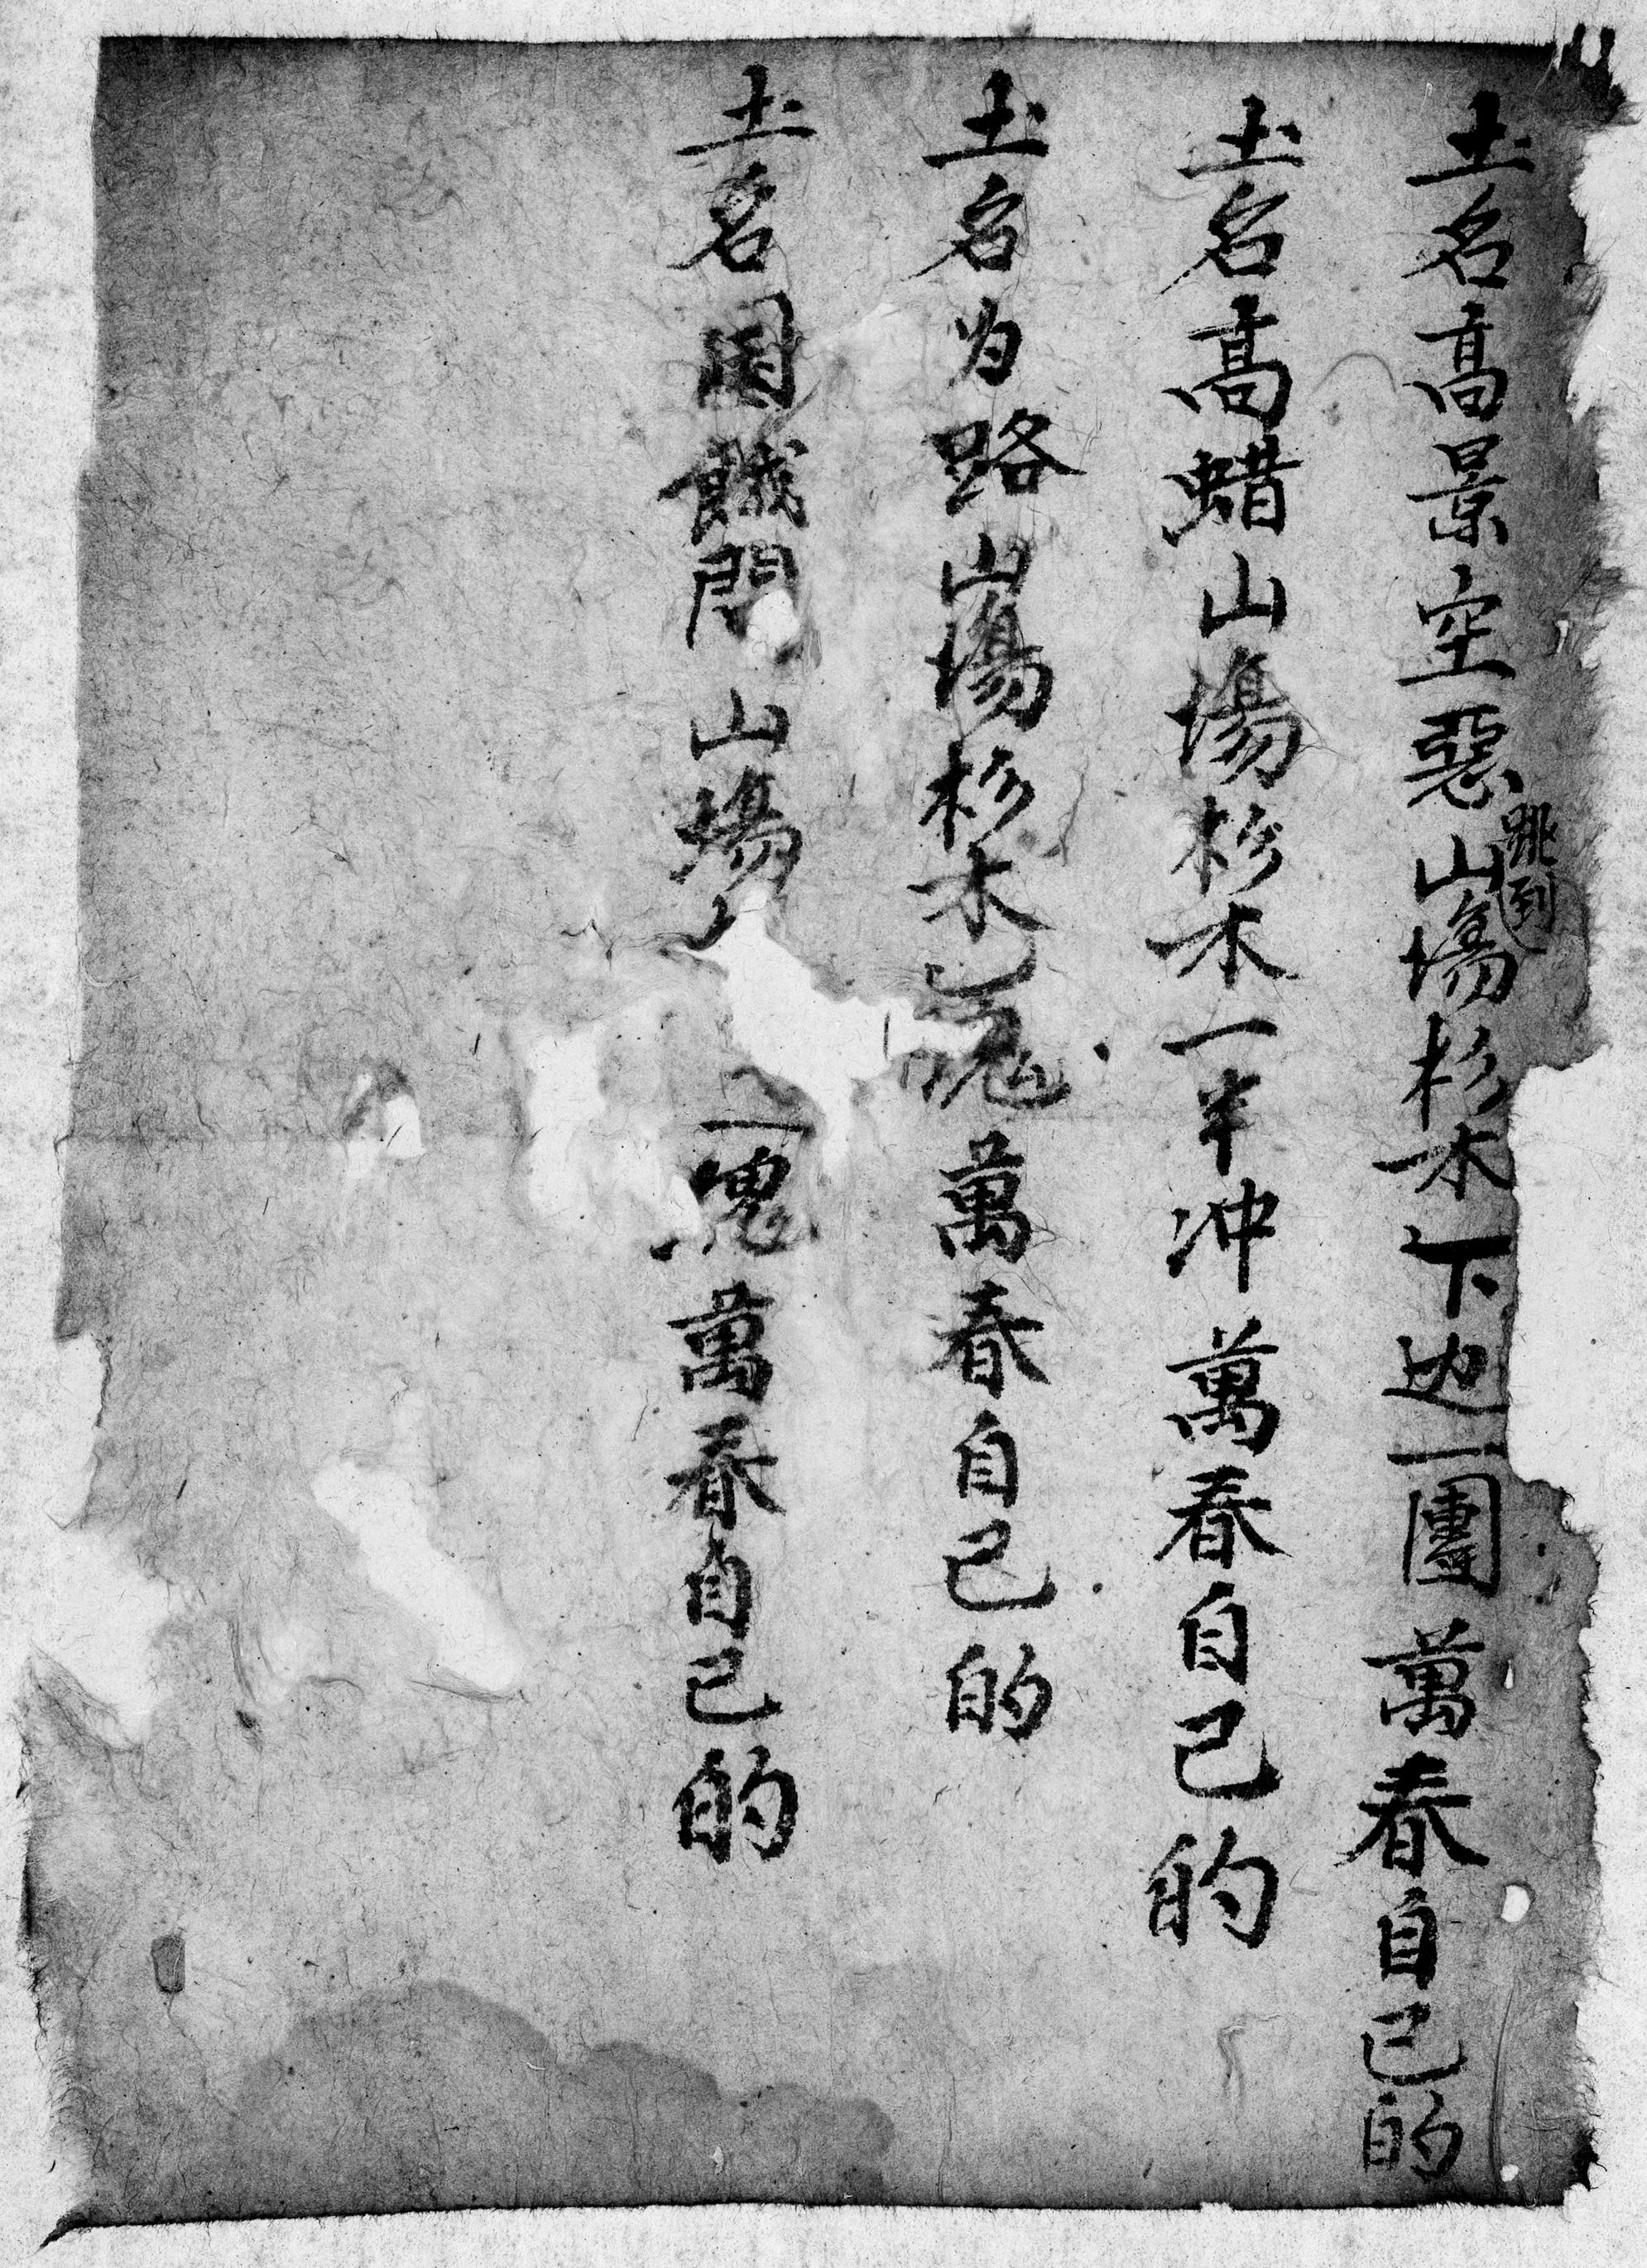 土名髙景空惡山塲杉木下边一團萬春自己的
跳到
土名髙蜡山塲杉木一半冲萬春自己的
土名为路山塲杉木塊萬春自己的
土名困餓門山塲一塊萬春自己的